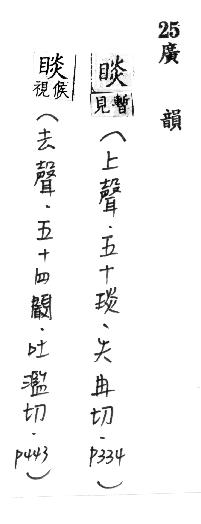 25廣韻
睒暫見（上聲．五十琰．失冉切．P334）
睒候視（去聲．五十四闞．吐濫切．P443）